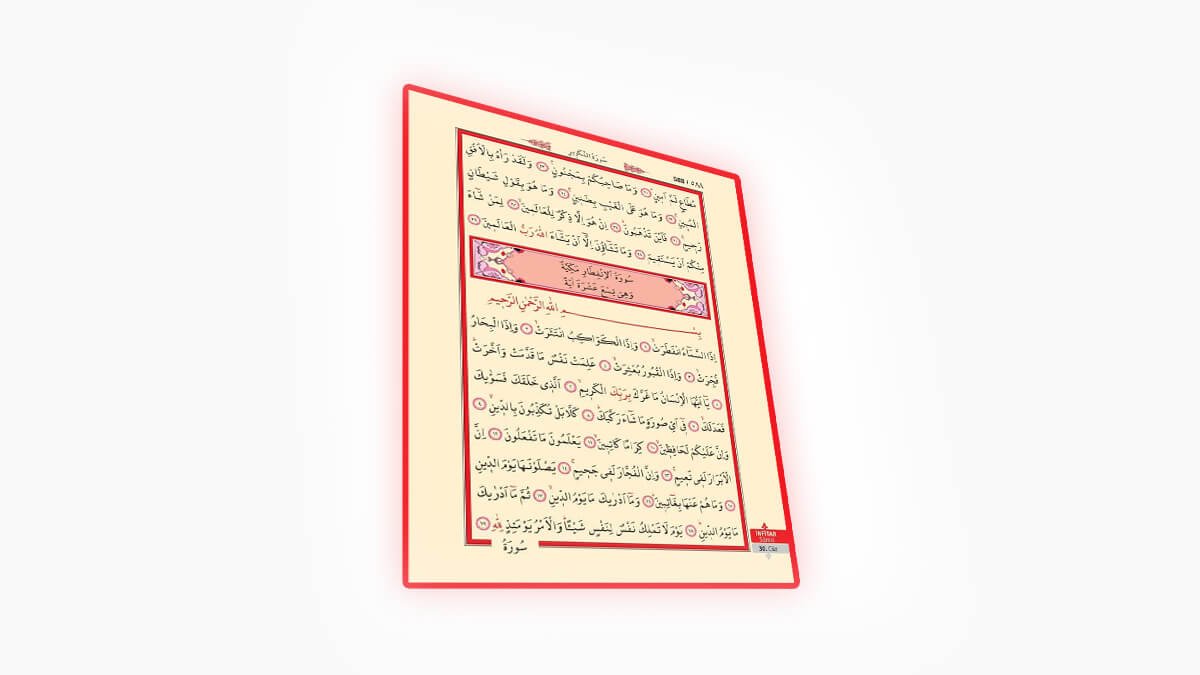 ٥٨٨ | 588
سُورَةُ التَّكْوِيرِ
مُطَاعٍ ثَمَّ اَم۪ينٍۜ ﴿٢١﴾ وَمَا صَاحِبُكُمْ بِمَجْنُونٍۚ ﴿٢٢﴾ وَلَقَدْ رَاٰهُ بِالْاُفُقِ
الْمُب۪ينِۚ ﴿٢٣﴾ وَمَا هُوَ عَلَى الْغَيْبِ بِضَن۪ينٍۚ ﴿٢٤﴾ وَمَا هُوَ بِقَوْلِ شَيْطَانٍ
رَج۪يمٍۙ ﴿٢٥﴾ فَاَيْنَ تَذْهَبُونَۜ ﴿٢٦﴾ اِنْ هُوَ اِلَّا ذِكْرٌ لِلْعَالَم۪ينَۙ ﴿٢٧﴾ لِمَنْ شَٓاءَ
مِنْكُمْ اَنْ يَسْتَق۪يمَۜ ﴿٢٨﴾ وَمَا تَشَٓاؤُ۫نَ اِلَّٓا اَنْ يَشَٓاءَ اللّٰهُ رَبُّ الْعَالَم۪ينَ ﴿٢٩﴾
سُورَةُ الْاِنْفِطَارِ مَكِّيَّةٌ
وَهِيَ تِسْعَ عَشْرَةَ اٰيَةً
بِسْمِ اللّٰهِ الرَّحْمٰنِ الرَّح۪يمِ
اِذَا السَّمَٓاءُ انْفَطَرَتْۙ ﴿١﴾ وَاِذَا الْكَوَاكِبُ انْتَثَرَتْۙ ﴿٢﴾ وَاِذَا الْبِحَارُ
فُجِّرَتْۙ ﴿٣﴾ وَاِذَا الْقُبُورُ بُعْثِرَتْۙ ﴿٤﴾ عَلِمَتْ نَفْسٌ مَا قَدَّمَتْ وَاَخَّرَتْۜ
﴿٥﴾ يَٓا اَيُّهَا الْاِنْسَانُ مَا غَرَّكَ بِرَبِّكَ الْكَر۪يمِۙ ﴿٦﴾ اَلَّذ۪ي خَلَقَكَ فَسَوّٰيكَ
فَعَدَلَكَۙ ﴿٧﴾ ف۪ٓي اَيِّ صُورَةٍ مَا شَٓاءَ رَكَّبَكَۜ ﴿٨﴾ كَلَّا بَلْ تُكَذِّبُونَ بِالدّ۪ينِۙ ﴿٩﴾
وَاِنَّ عَلَيْكُمْ لَحَافِظ۪ينَۙ ﴿١٠﴾ كِرَامًا كَاتِب۪ينَۙ ﴿١١﴾ يَعْلَمُونَ مَا تَفْعَلُونَ ﴿١٢﴾ اِنَّ
الْاَبْرَارَ لَف۪ي نَع۪يمٍۚ ﴿١٣﴾ وَاِنَّ الْفُجَّارَ لَف۪ي جَح۪يمٍۚ ﴿١٤﴾ يَصْلَوْنَهَا يَوْمَ الدّ۪ينِ
﴿١٥﴾ وَمَا هُمْ عَنْهَا بِغَٓائِب۪ينَۜ ﴿١٦﴾ وَمَٓا اَدْرٰيكَ مَا يَوْمُ الدّ۪ينِۙ ﴿١٧﴾ ثُمَّ مَٓا اَدْرٰيكَ
مَا يَوْمُ الدّ۪ينِۜ ﴿١٨﴾ يَوْمَ لَا تَمْلِكُ نَفْسٌ لِنَفْسٍ شَيْـًٔاۜ وَالْاَمْرُ يَوْمَئِذٍ لِلّٰهِ ﴿١٩﴾
سُورَةُ
İNFİTAR
Sûresi
30. Cüz